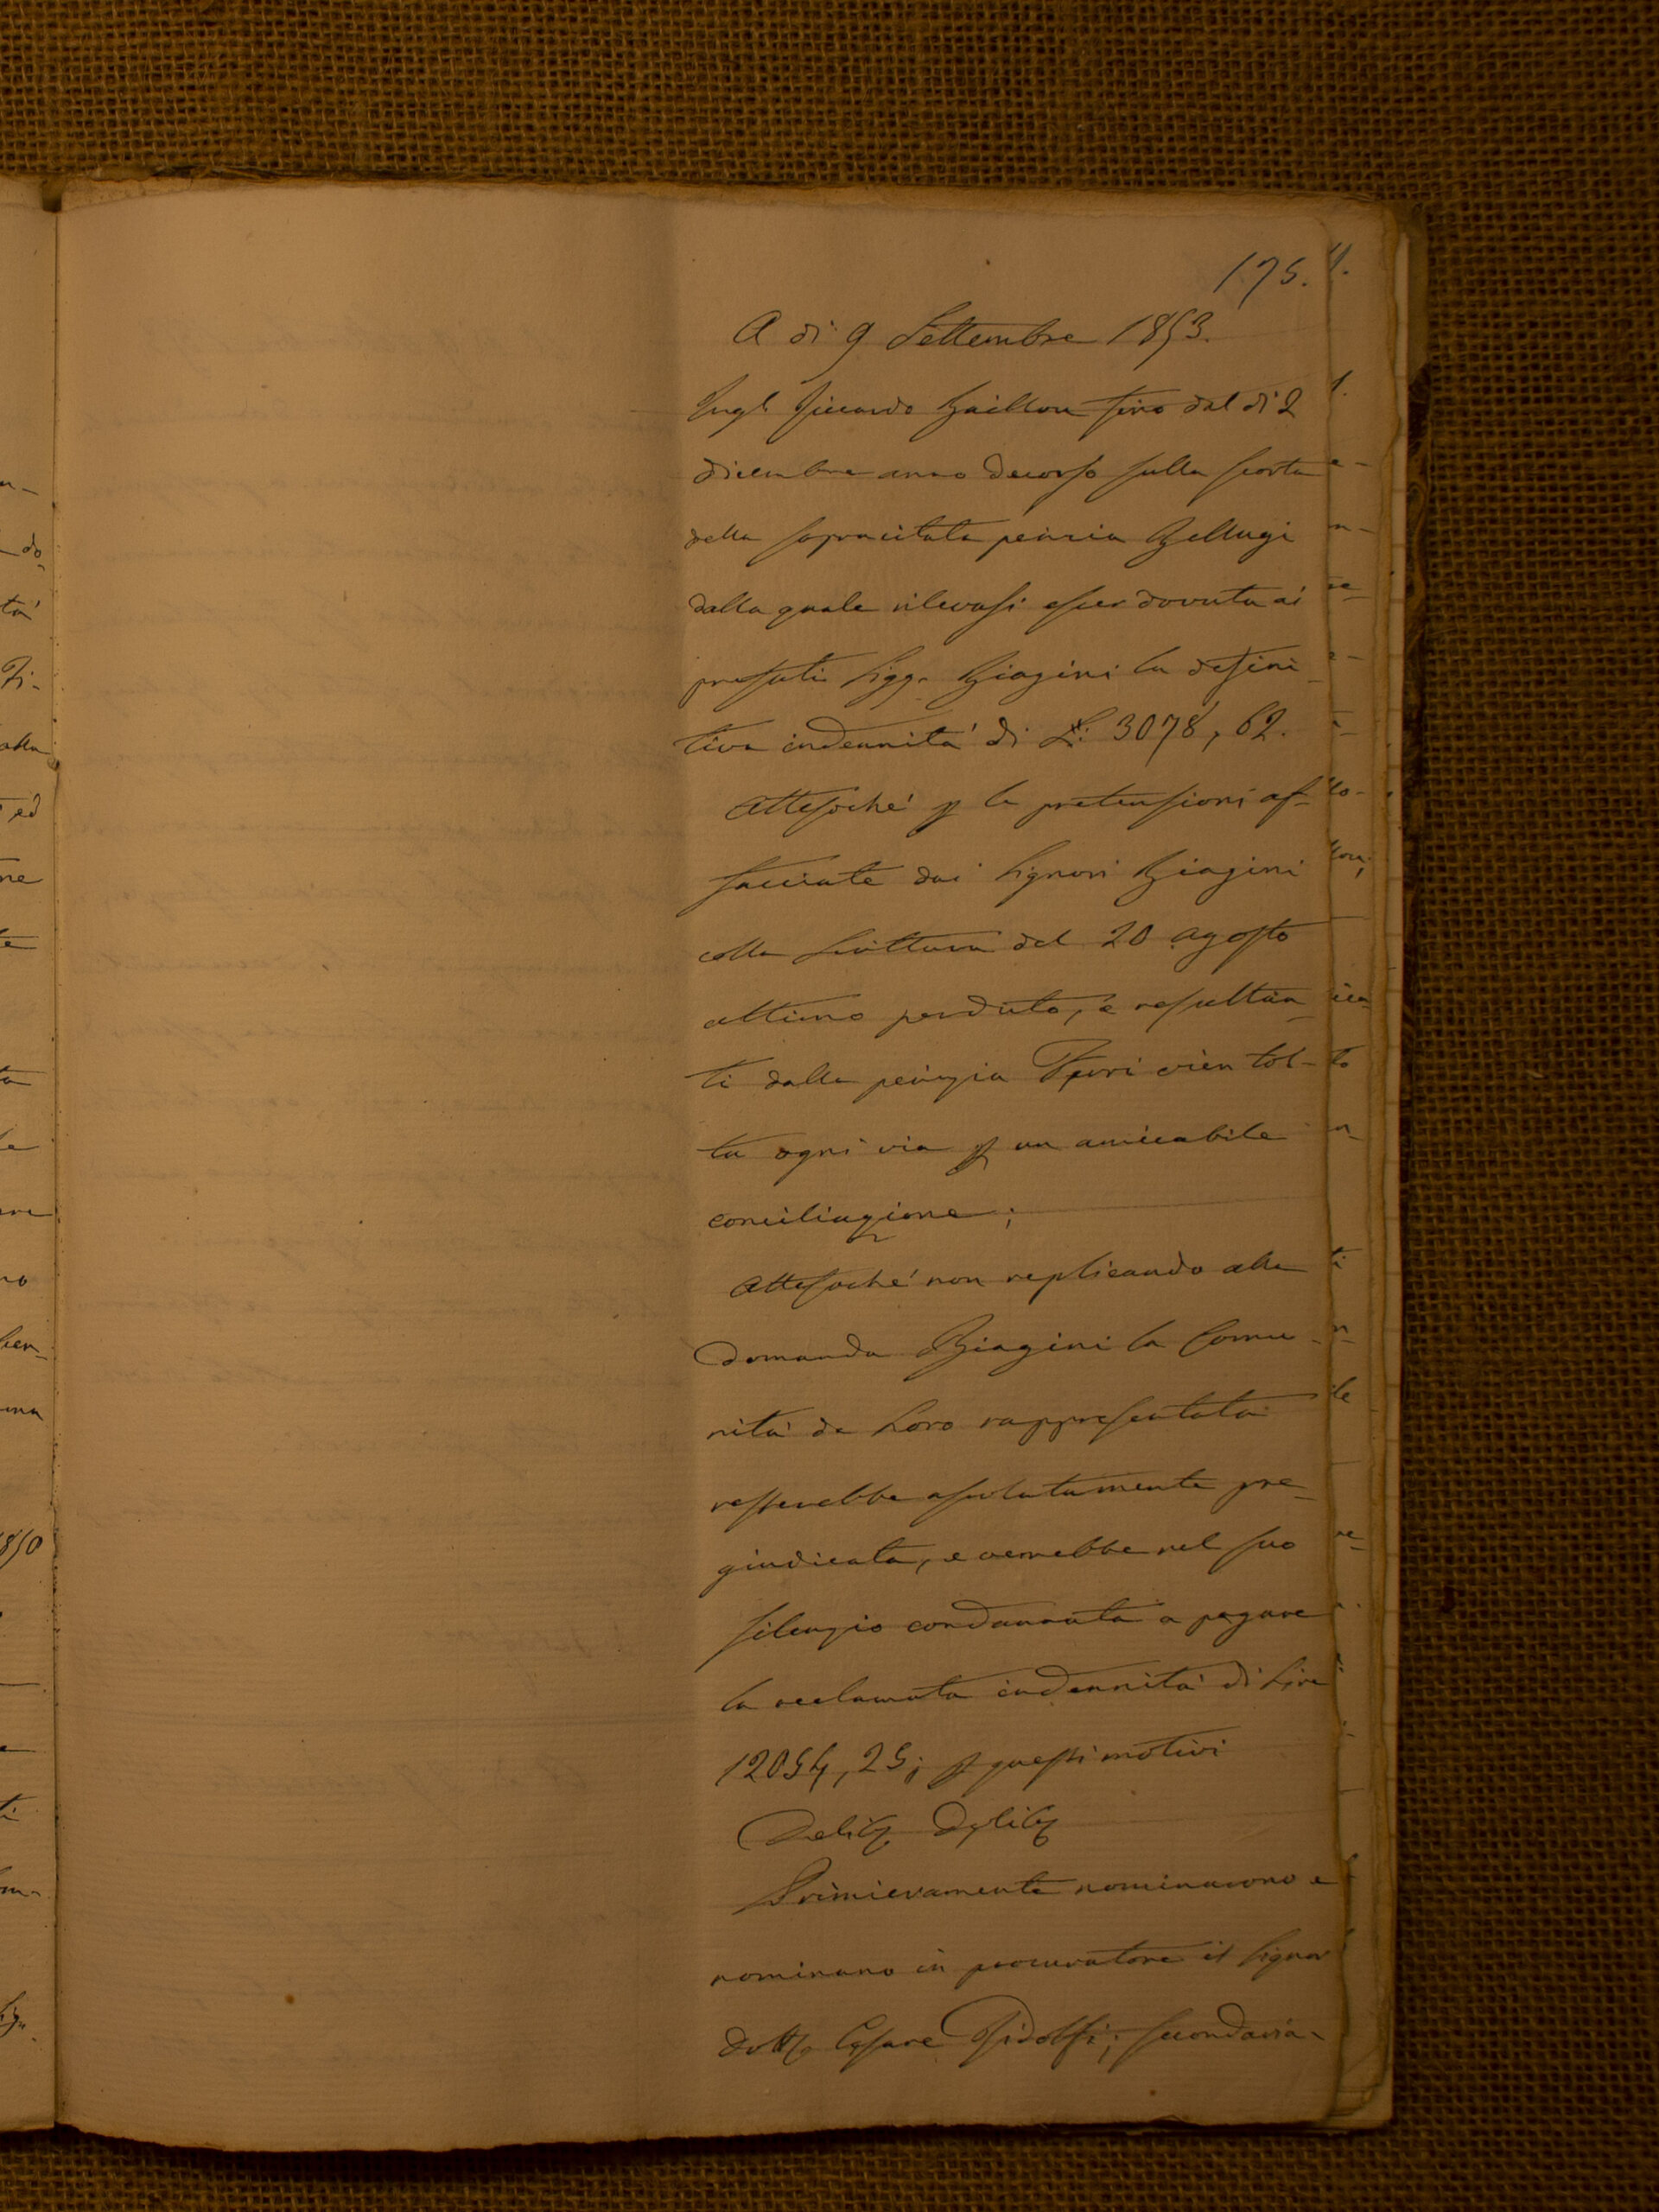 175.
A dì 9 Settembre 1853.
Ingl. Riccardo Baillou fino dal dì 2
dicembre anno decorso sulla scorta
della sopracitata perizia Bellugi
dalla quale rilevasi esser dovuta ai
prefati Sigg. Biagini la defini-
tiva indennità di L: 3078, 62.
Attesochè p le pretensioni af-
facciate dai Signori Biagini
colla Scrittura del 20 agosto
ultimo perduto, e resultan-
ti dalla perizia vien tol-
ta ogni via p un amicabile
conciliazione;
Attesochè non replicando alla
domanda Biagini la Comu-
nità da Loro rappresentata
resterebbe assolutamente pre-
giudicata, e verrebbe nel suo
silenzio condannata a pagare
la reclamata indennità di Lire
12054, 25; p questi motivi
Delib Delib
Primieramente nominarono e
nominano in procuratore il Signor
Dott Cesare Ridolfi; secondaria-